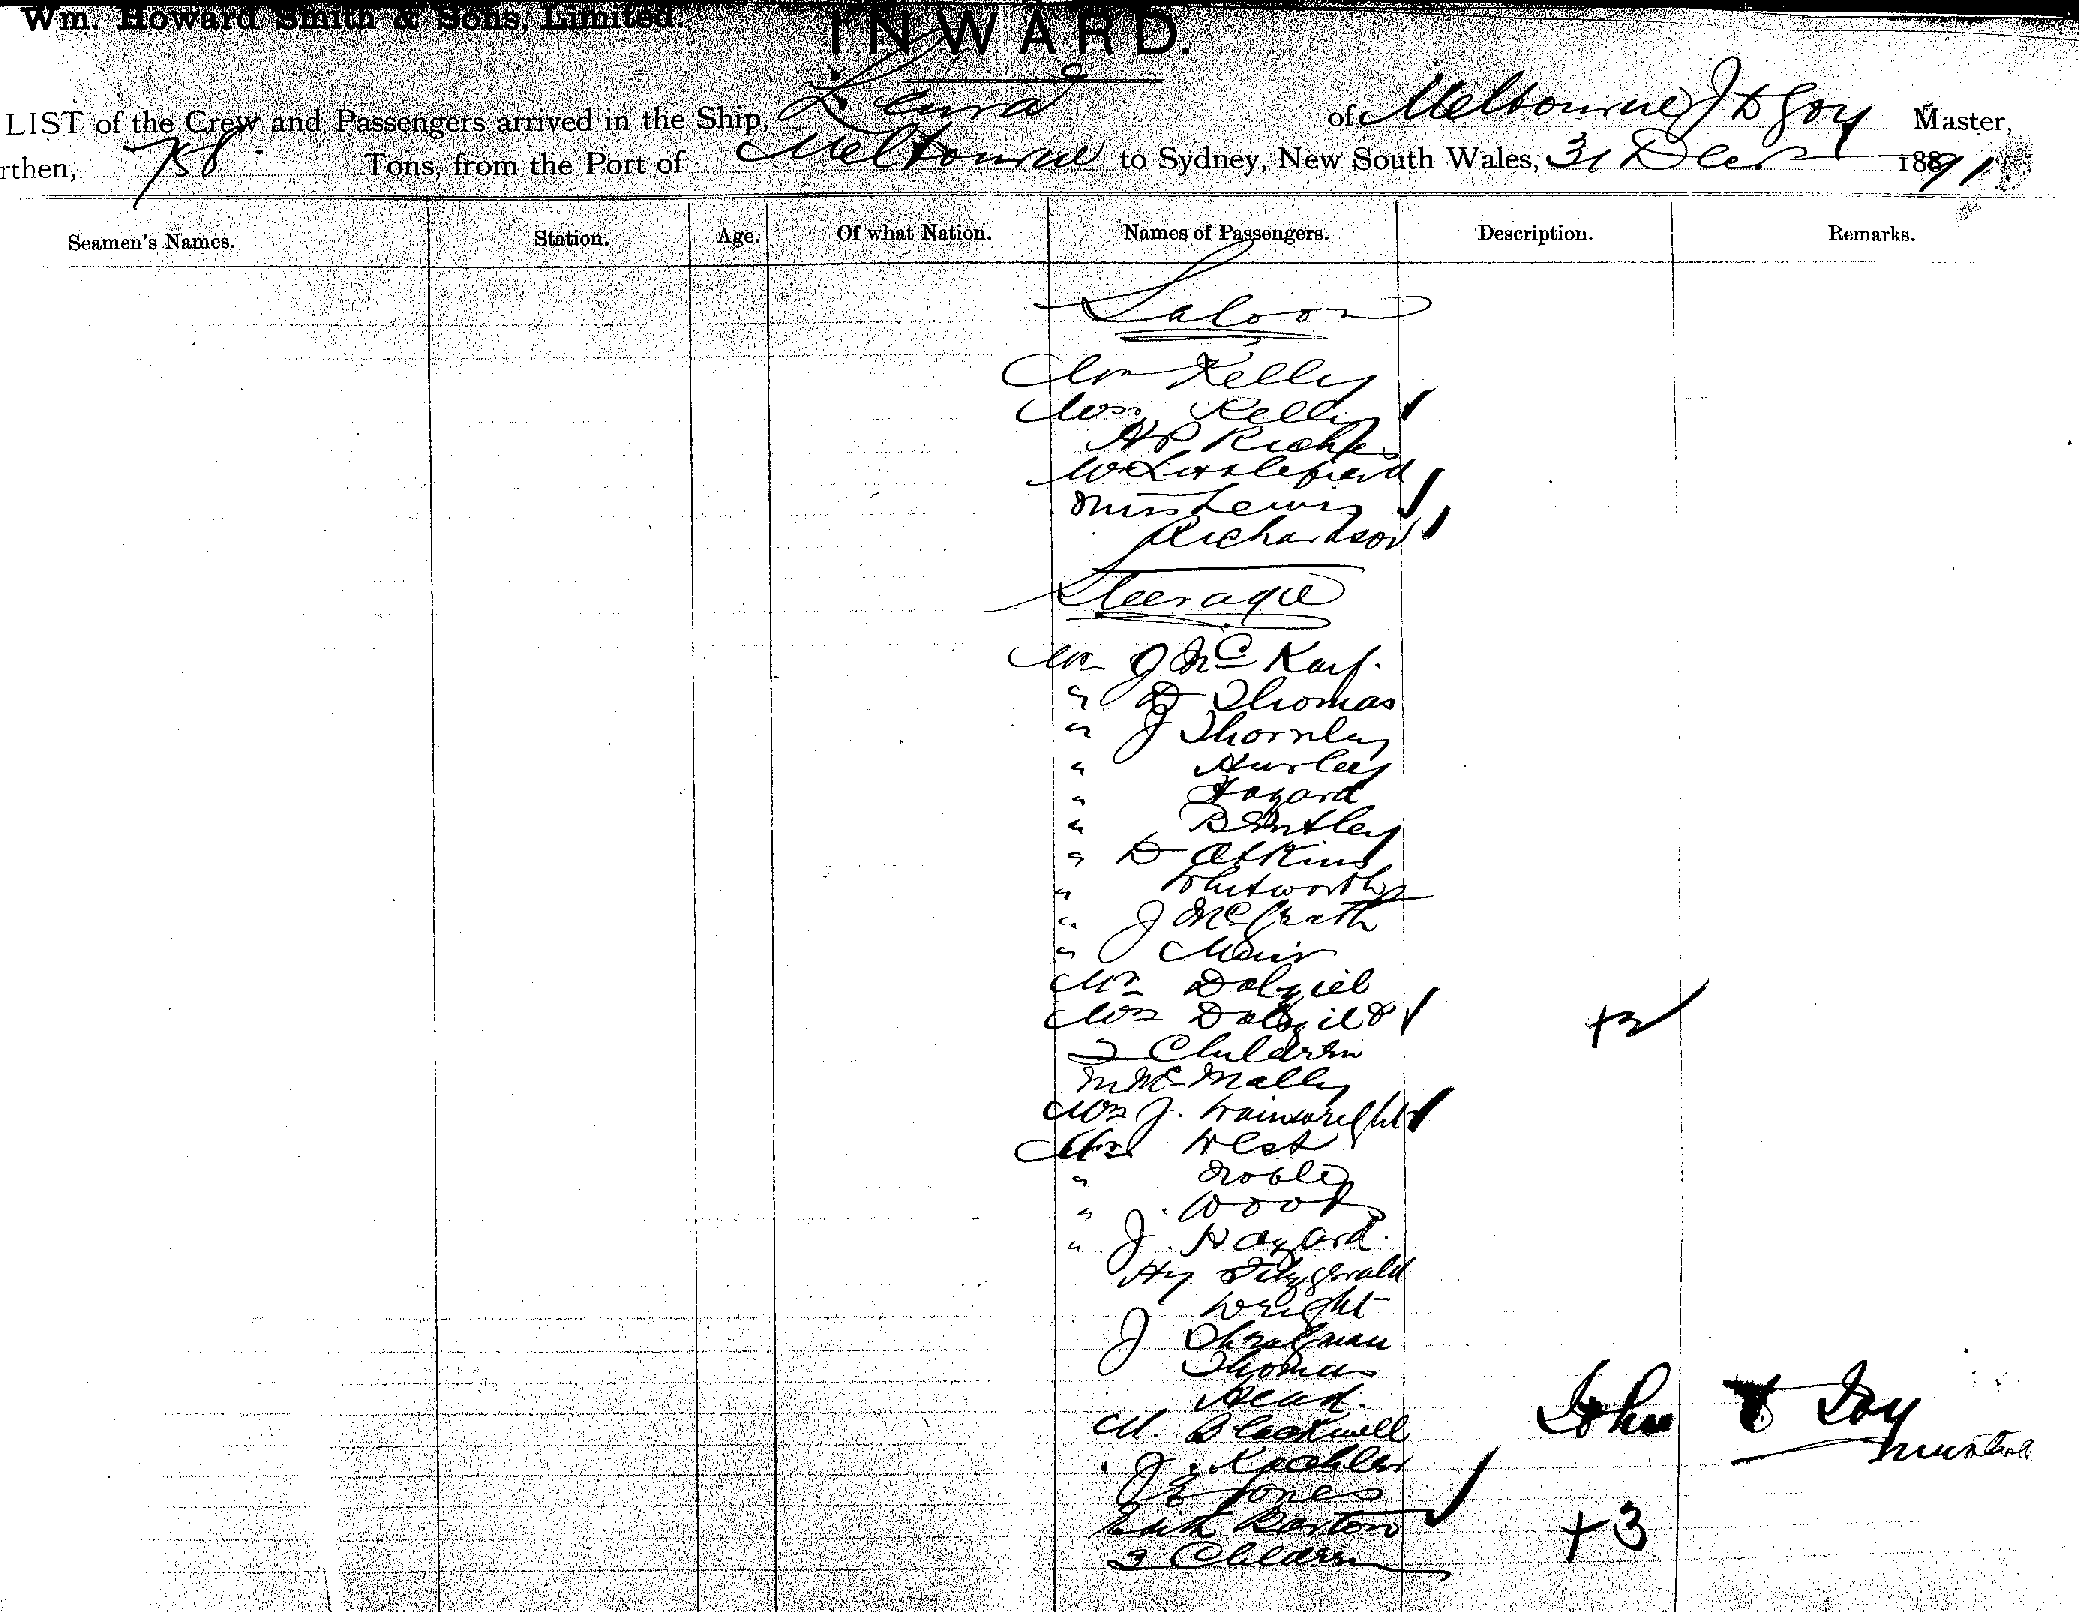 Wm. Howard Smith & Sons, Limited.
INWARD.
LIST of the Crew and Passengers arrived in the Ship, Leura of Melbourne J D Joy Master,
rthen, 788 Tons, from the Port of Melbourne to Sydney, New South Wales, 31 Decr 1891
Seamen's Names. Station. Age. Of what Nation. Names of Passengers. Description. Remarks.
Saloon
Mr Kelly
Mrs Kelly
H P
W Littlefield
Miss Lewis
Richardson
Steerage
Mr J Mc Kay.
" D Thomas
" J Thornley
" Hurley
" Hazard
" Bentley
" D Atkins
" Whitworth
" J McGrath
" Meir
Mr Dalziel
Mrs Dalziel &
2 Children +2
M Mc Nally
Mrs J. Wainwright
Mr West
" Noble
" J. Wood
" J Hazard.
Hy Fitzgerald
Wright
J
Thomas
Head.
M. Blackwell
John Joy
J. Kachler
Master
J E Jones
Barton
+3
Children